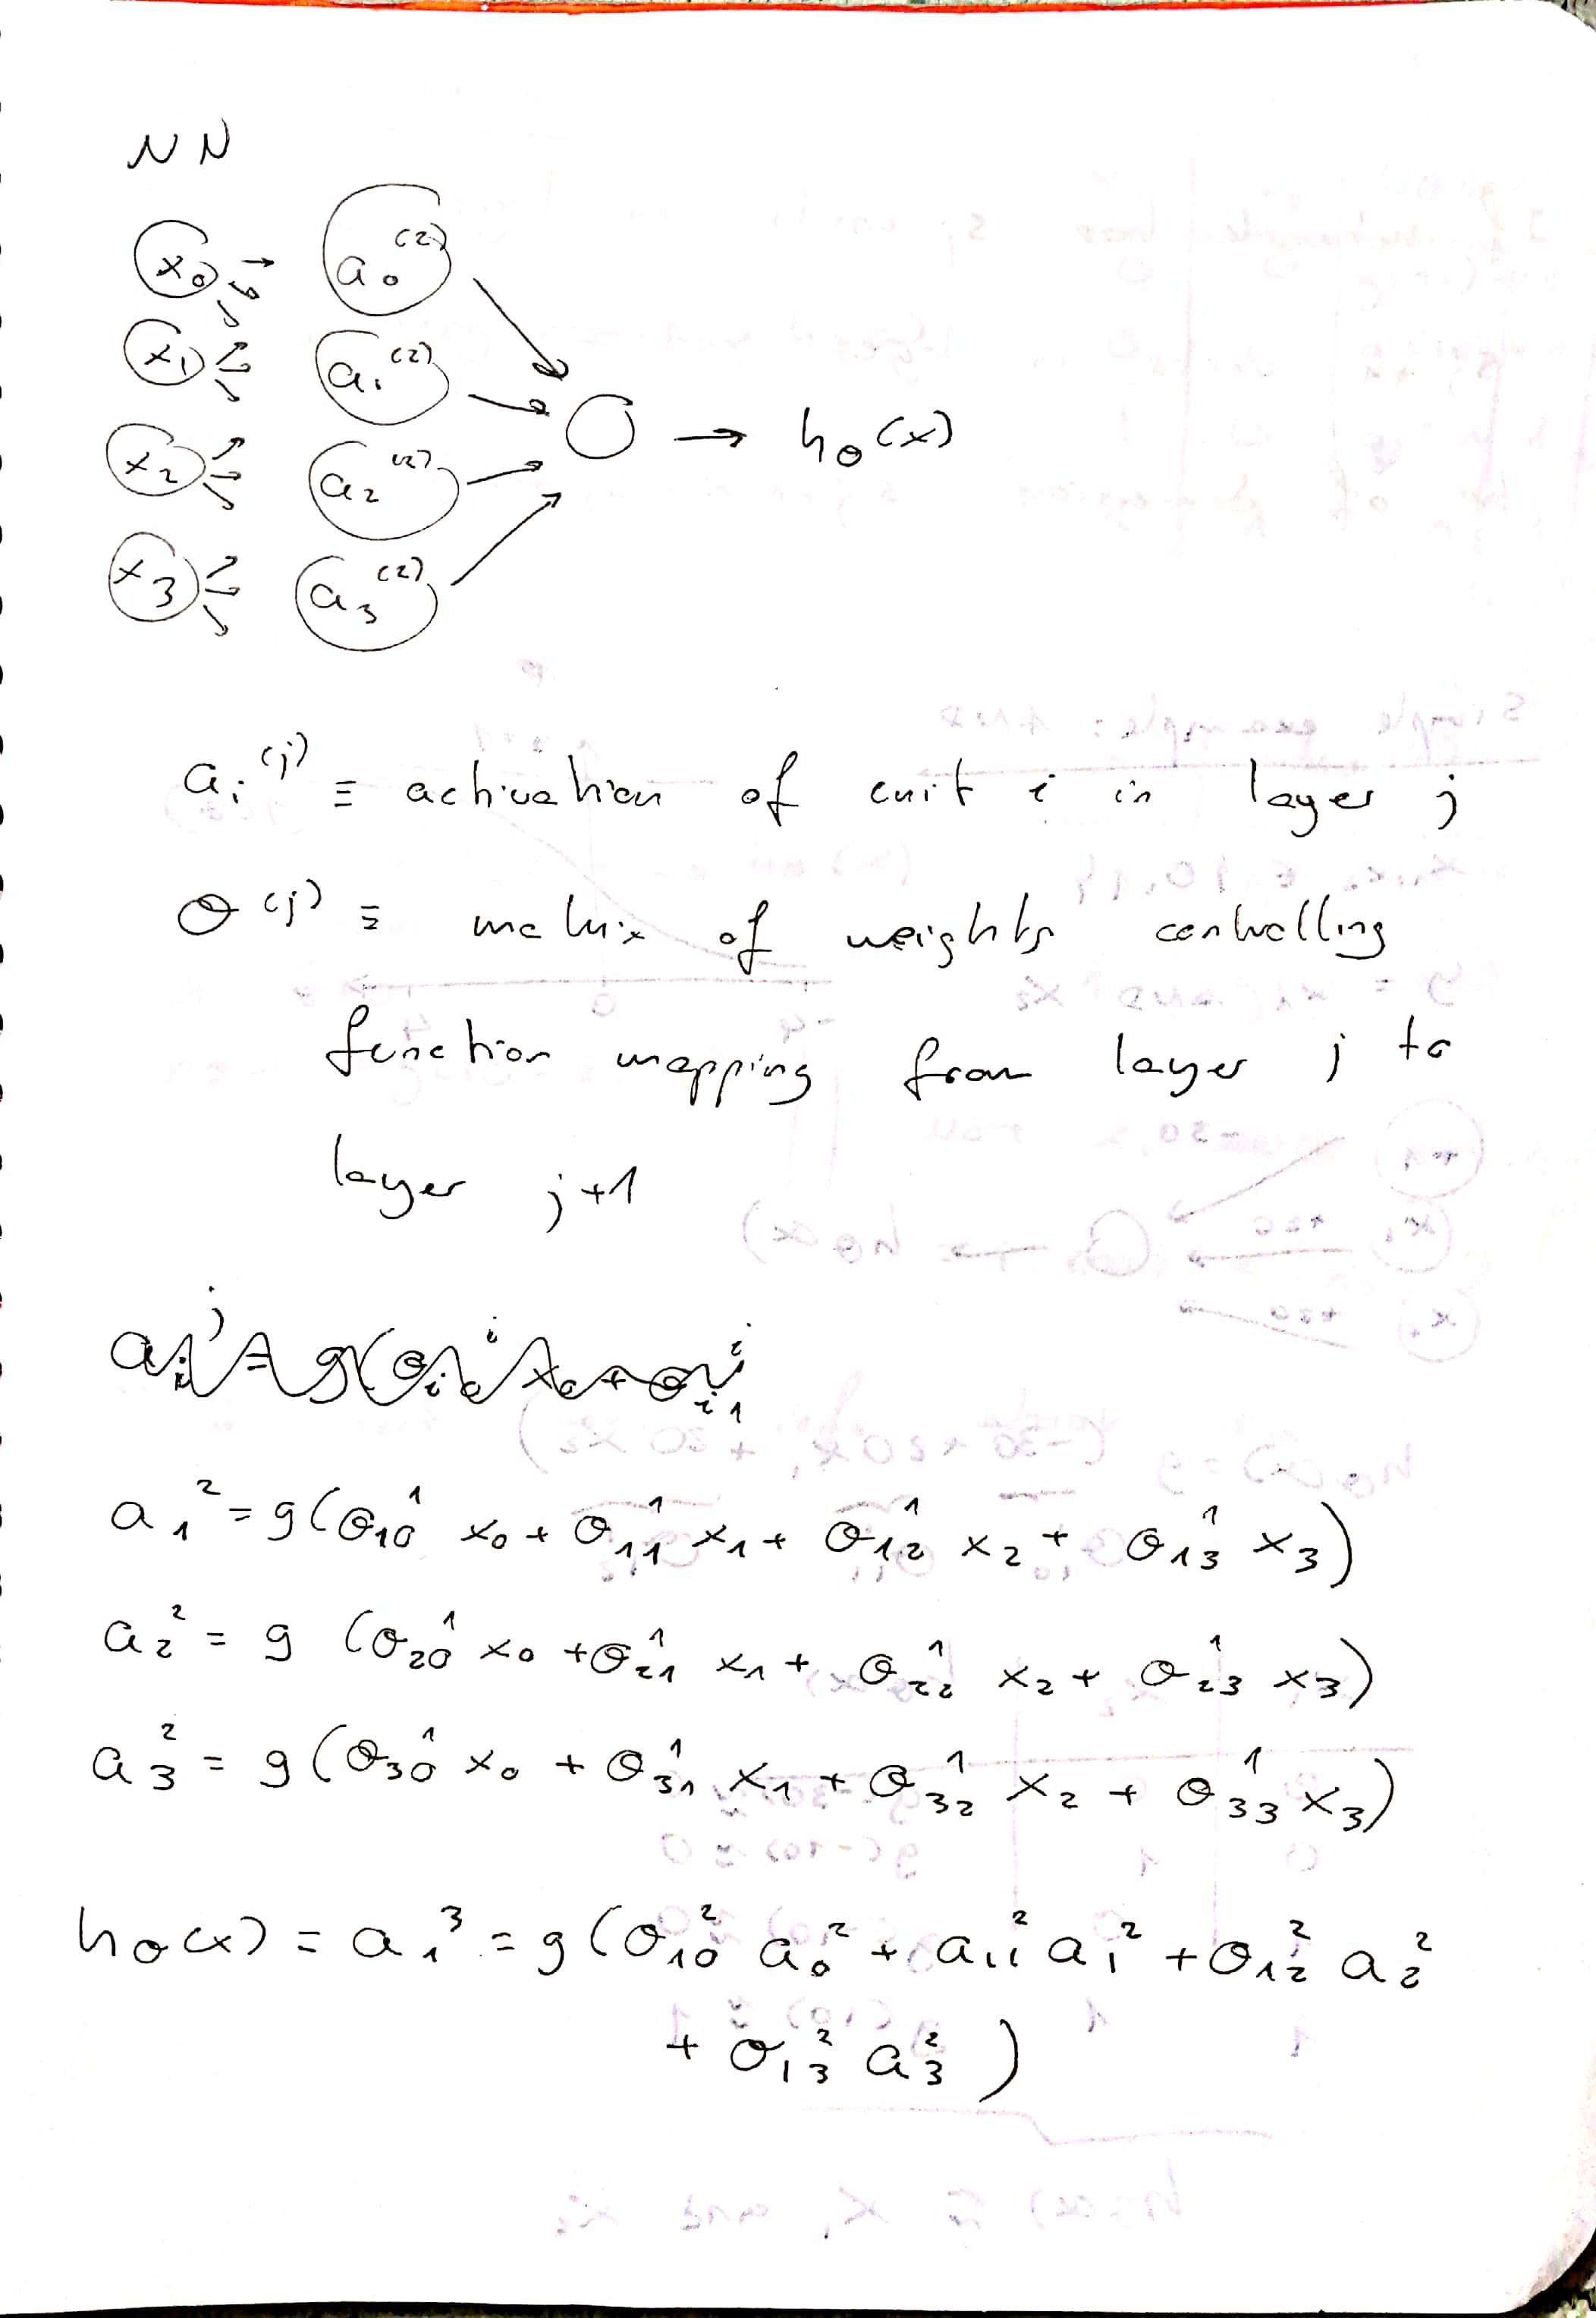 NN
x₀ a₀⁽²⁾
x₁ a₁⁽²⁾
→ h_θ(x)
x₂ a₂⁽²⁾
x₃ a₃⁽²⁾
aᵢ⁽ʲ⁾ ≡ activation of unit i in layer j
Θ⁽ʲ⁾ ≡ matrix of weights controlling
function mapping from layer j to
layer j+1
a₁² = g(Θ₁₀¹ x₀ + Θ₁₁¹ x₁ + Θ₁₂¹ x₂ + Θ₁₃¹ x₃)
a₂² = g (Θ₂₀¹ x₀ + Θ₂₁¹ x₁ + Θ₂₂¹ x₂ + Θ₂₃¹ x₃)
a₃² = g (Θ₃₀¹ x₀ + Θ₃₁¹ x₁ + Θ₃₂¹ x₂ + Θ₃₃¹ x₃)
h_θ(x) = a₁³ = g (Θ₁₀² a₀² + a₁₁² a₁² + Θ₁₂² a₂²
+ Θ₁₃² a₃²)